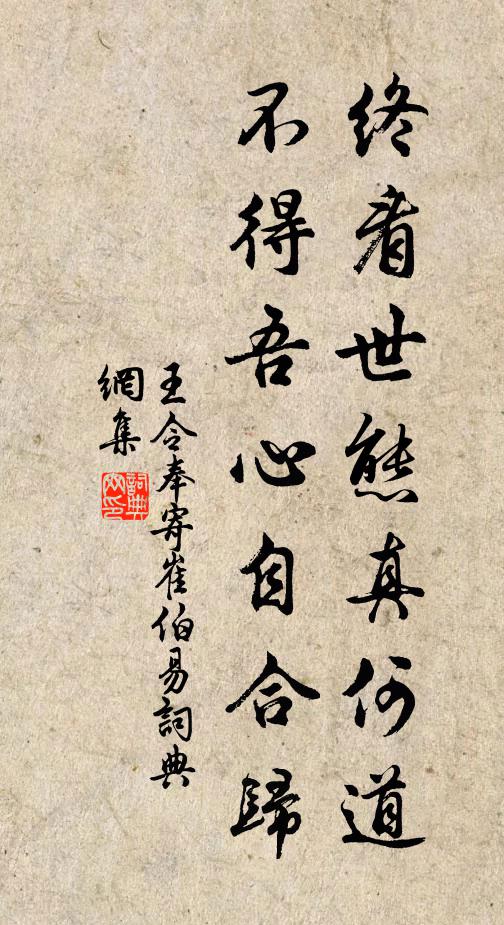 終看世態真何道
不得吾心自合歸
王令奉寄崔伯易詞典
網集
詞典
网印